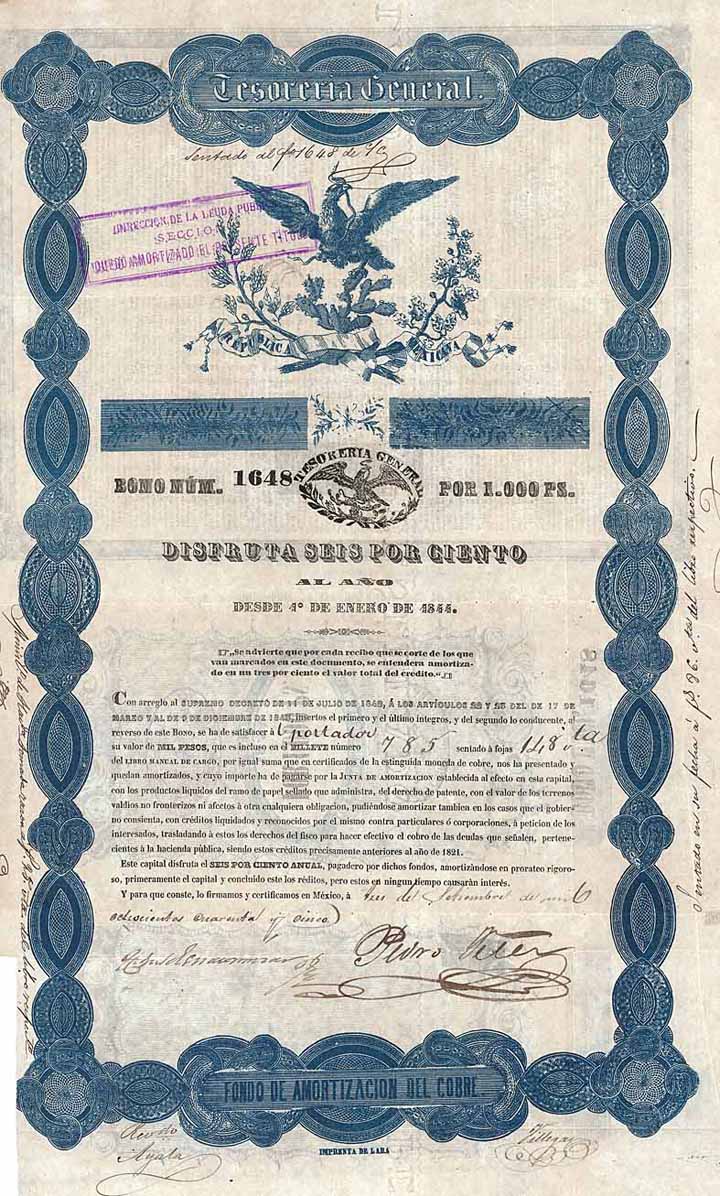 Tesorería General.
Sentado al fo 1648 de
DIRECCION DE LA DEUDA PUB
SECCIO
QUEDO AMORTIZADO EL PRESENTE TITU
REPÚBLICA MEXICANA
BONO NÚM. 1648
TESORERIA GENERAL
POR 1.000 PS.
DISFRUTA SEIS POR CIENTO
AL AÑO
DESDE 1º DE ENERO DE 1844.
„Se advierte que por cada recibo que se corte de los que
van marcados en este documento, se entenderá amortiza-
do en un tres por ciento el valor total del crédito."
Con arreglo al SUPREMO DECRETO DE 11 DE JULIO DE 1843, Á LOS ARTÍCULOS 22 Y 23 DEL DE 17 DE
MARZO Y AL DE 9 DE DICIEMBRE DE 1843, insertos el primero y el último íntegros, y del segundo lo conducente, al
reverso de este BONO, se ha de satisfacer á l portador
su valor de MIL PESOS, que es incluso en el BILLETE número 785 sentado á fojas 148 vta
del LIBRO MANUAL DE CARGO, por igual suma que en certificados de la estinguida moneda de cobre, nos ha presentado y
quedan amortizados, y cuyo importe ha de pagarse por la JUNTA DE AMORTIZACION establecida al efecto en esta capital,
con los productos líquidos del ramo de papel sellado que administra, del derecho de patente, con el valor de los terrenos
valdios no fronterizos ni afectos á otra cualquiera obligacion, pudiéndose amortizar tambien en los casos que el gobier-
no consienta, con créditos liquidados y reconocidos por el mismo contra particulares ó corporaciones, á peticion de los
interesados, trasladando á estos los derechos del fisco para hacer efectivo el cobro de las deudas que señalen, pertene-
cientes á la hacienda pública, siendo estos créditos precisamente anteriores al año de 1821.
Este capital disfruta el SEIS POR CIENTO ANUAL, pagadero por dichos fondos, amortizándose en prorateo rigoro-
so, primeramente el capital y concluido este los réditos, pero estos en ningun tiempo causarán interés.
Y para que conste, lo firmamos y certificamos en México, á seis de Setiembre de mil
ochocientos cuarenta y cinco
Pedro Velez
Sentado en su fecha á fs 96 vta del libro respectivo.
FONDO DE AMORTIZACION DEL COBRE
Ayala
Villegas
IMPRENTA DE LARA